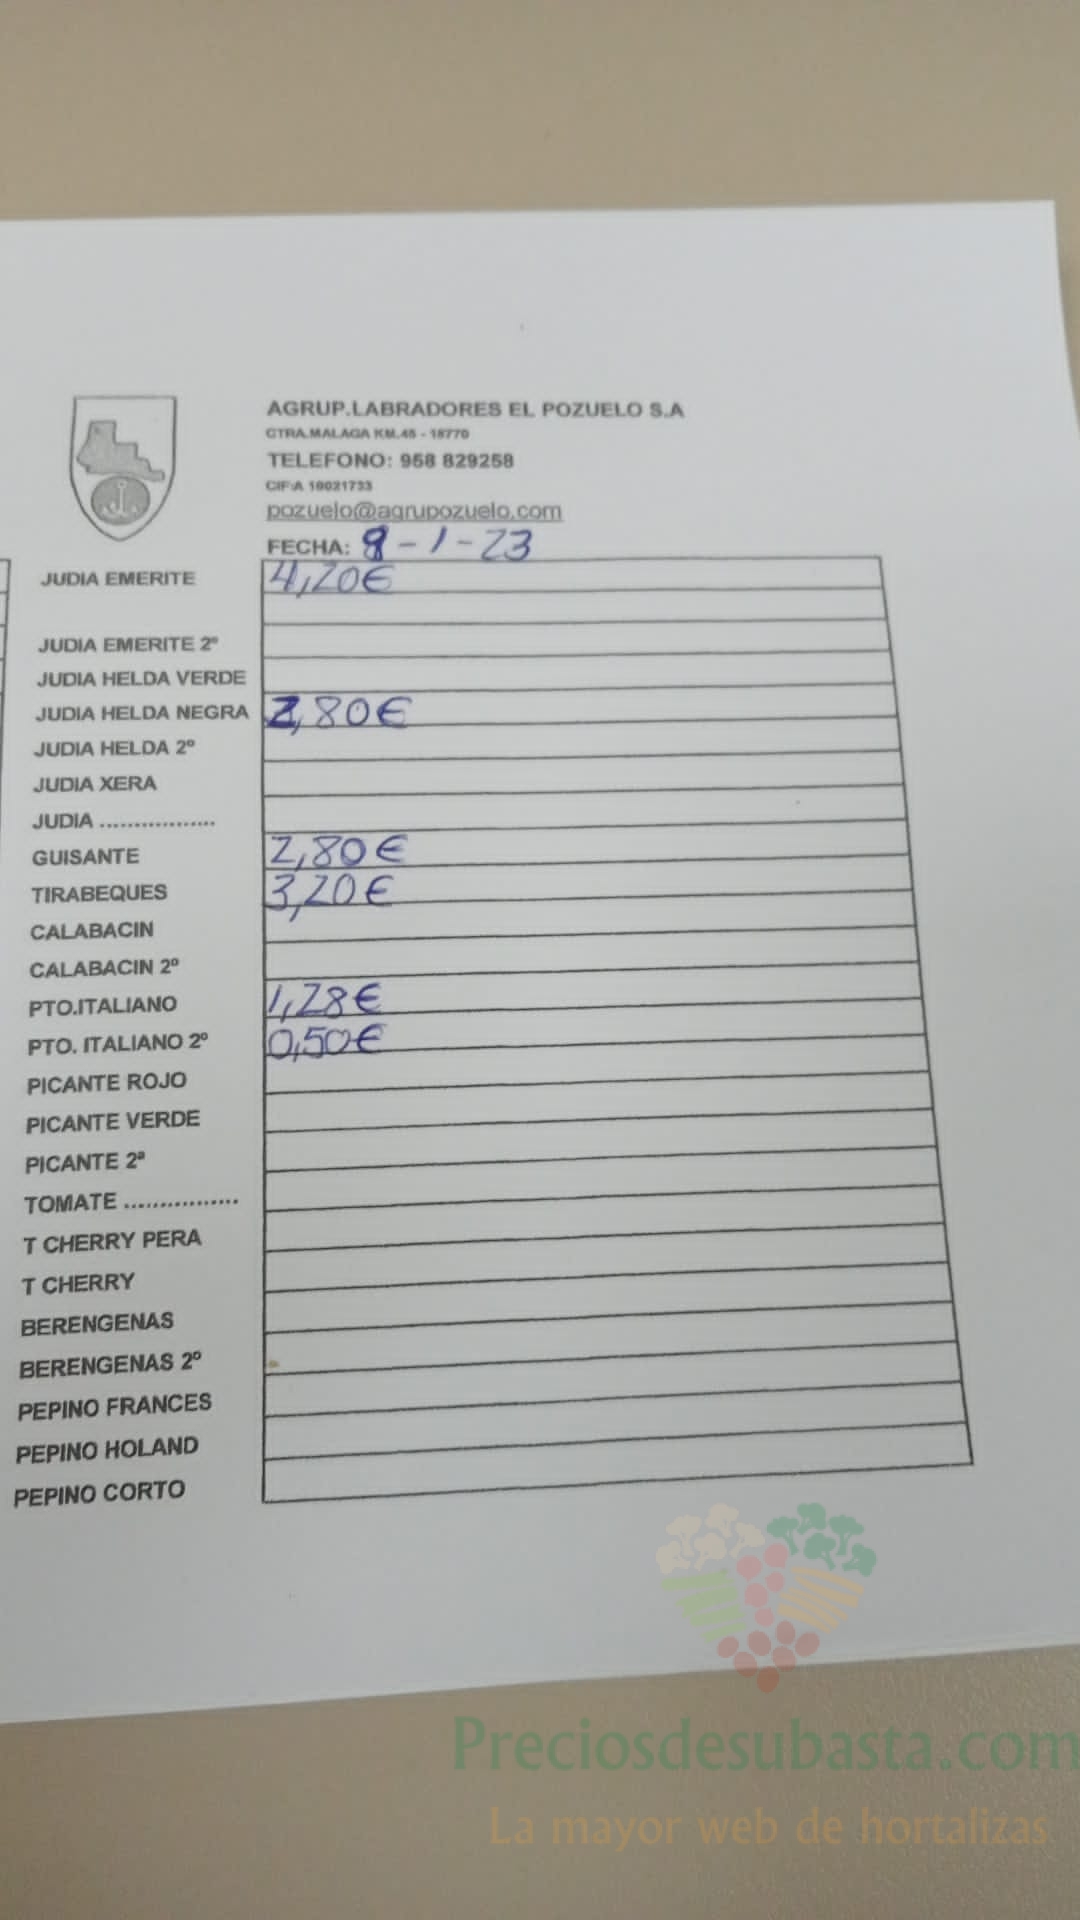 AGRUP.LABRADORES EL POZUELO S.A
CTRA.MALAGA KM.45 - 18770
TELEFONO: 958 829258
CIF:A 18021733
pozuelo@agrupozuelo.com
FECHA: 9-1-23
JUDIA EMERITE 4,20€
JUDIA EMERITE 2º
JUDIA HELDA VERDE
JUDIA HELDA NEGRA 2,80€
JUDIA HELDA 2º
JUDIA XERA
JUDIA .................
GUISANTE 2,80€
TIRABEQUES 3,20€
CALABACIN
CALABACIN 2º
PTO.ITALIANO 1,28€
PTO. ITALIANO 2º 0,50€
PICANTE ROJO
PICANTE VERDE
PICANTE 2ª
TOMATE ................
T CHERRY PERA
T CHERRY
BERENGENAS
BERENGENAS 2º
PEPINO FRANCES
PEPINO HOLAND
PEPINO CORTO
Preciosdesubasta.com
La mayor web de hortalizas